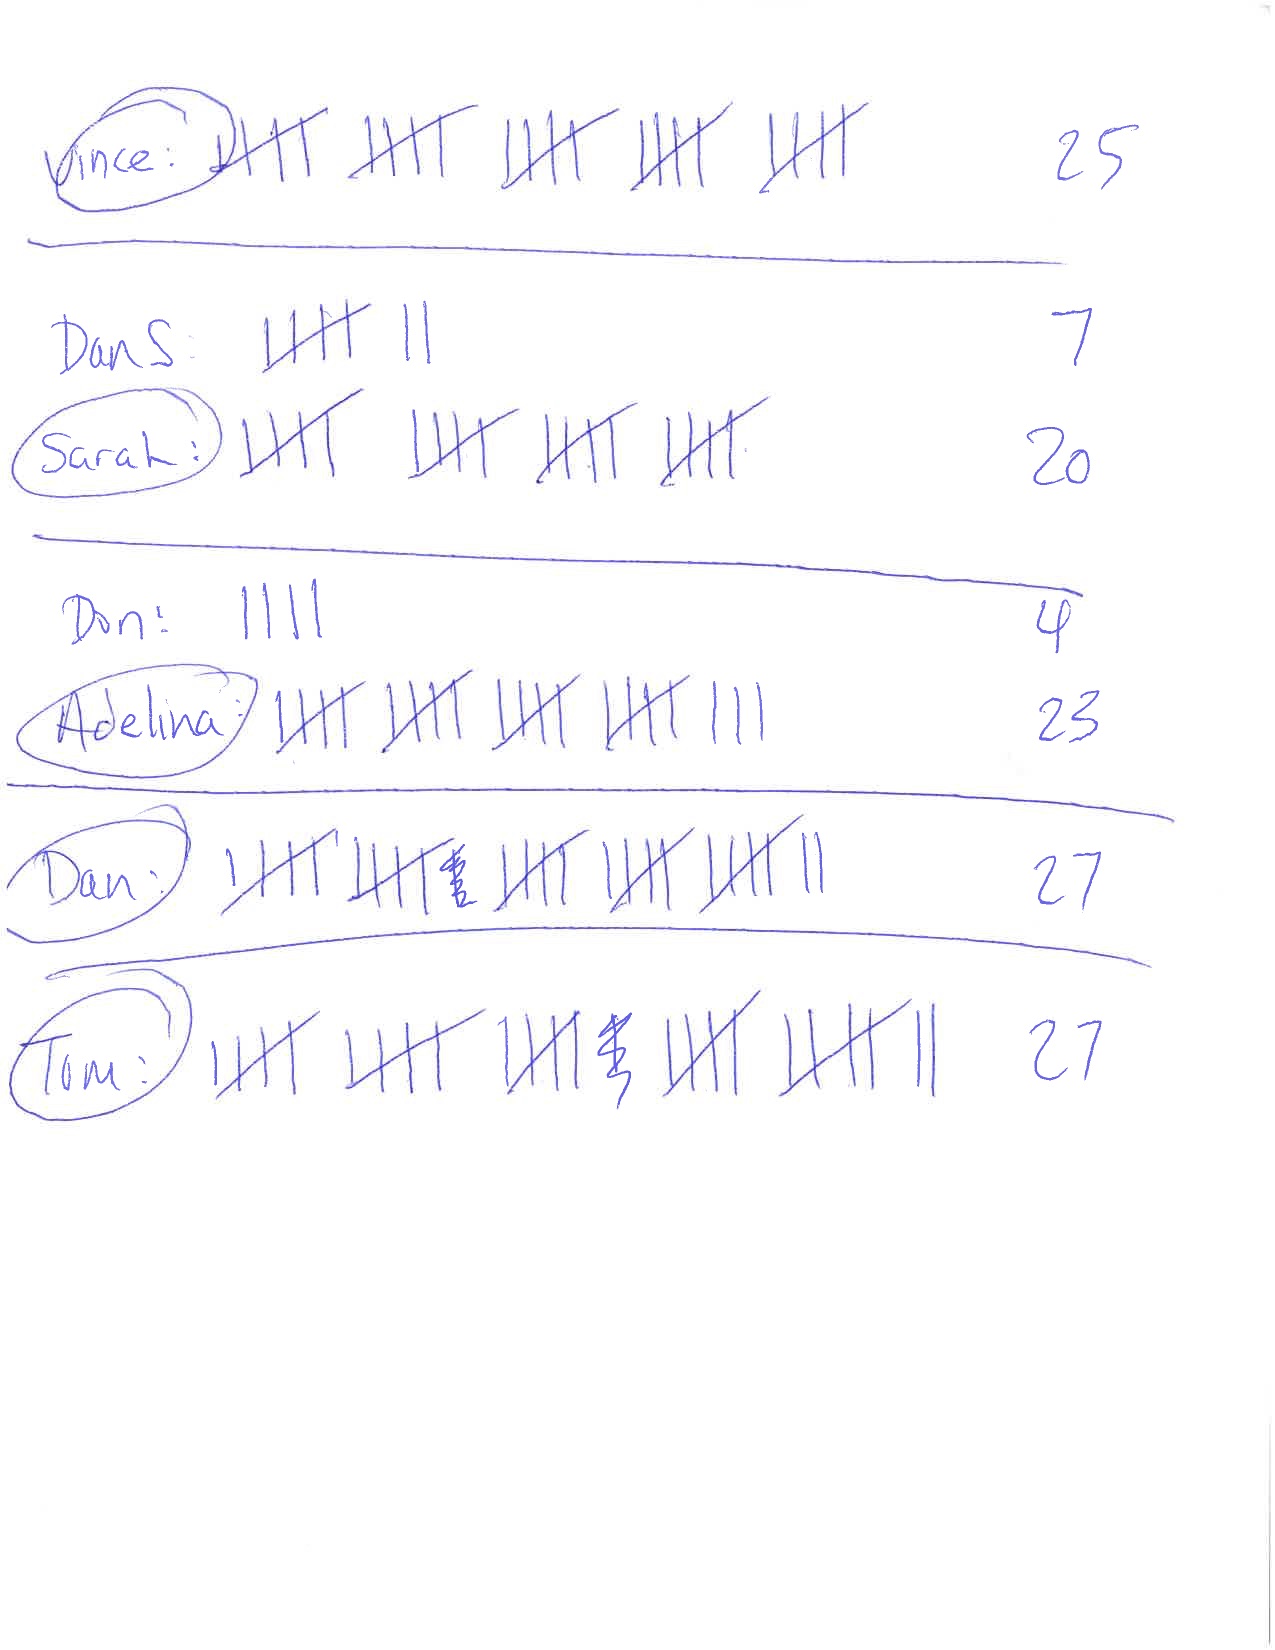 Vince: 25
Dan S: 7
Sarah: 20
Don: 4
Adelina: 23
Dan: 27
Tom: 27